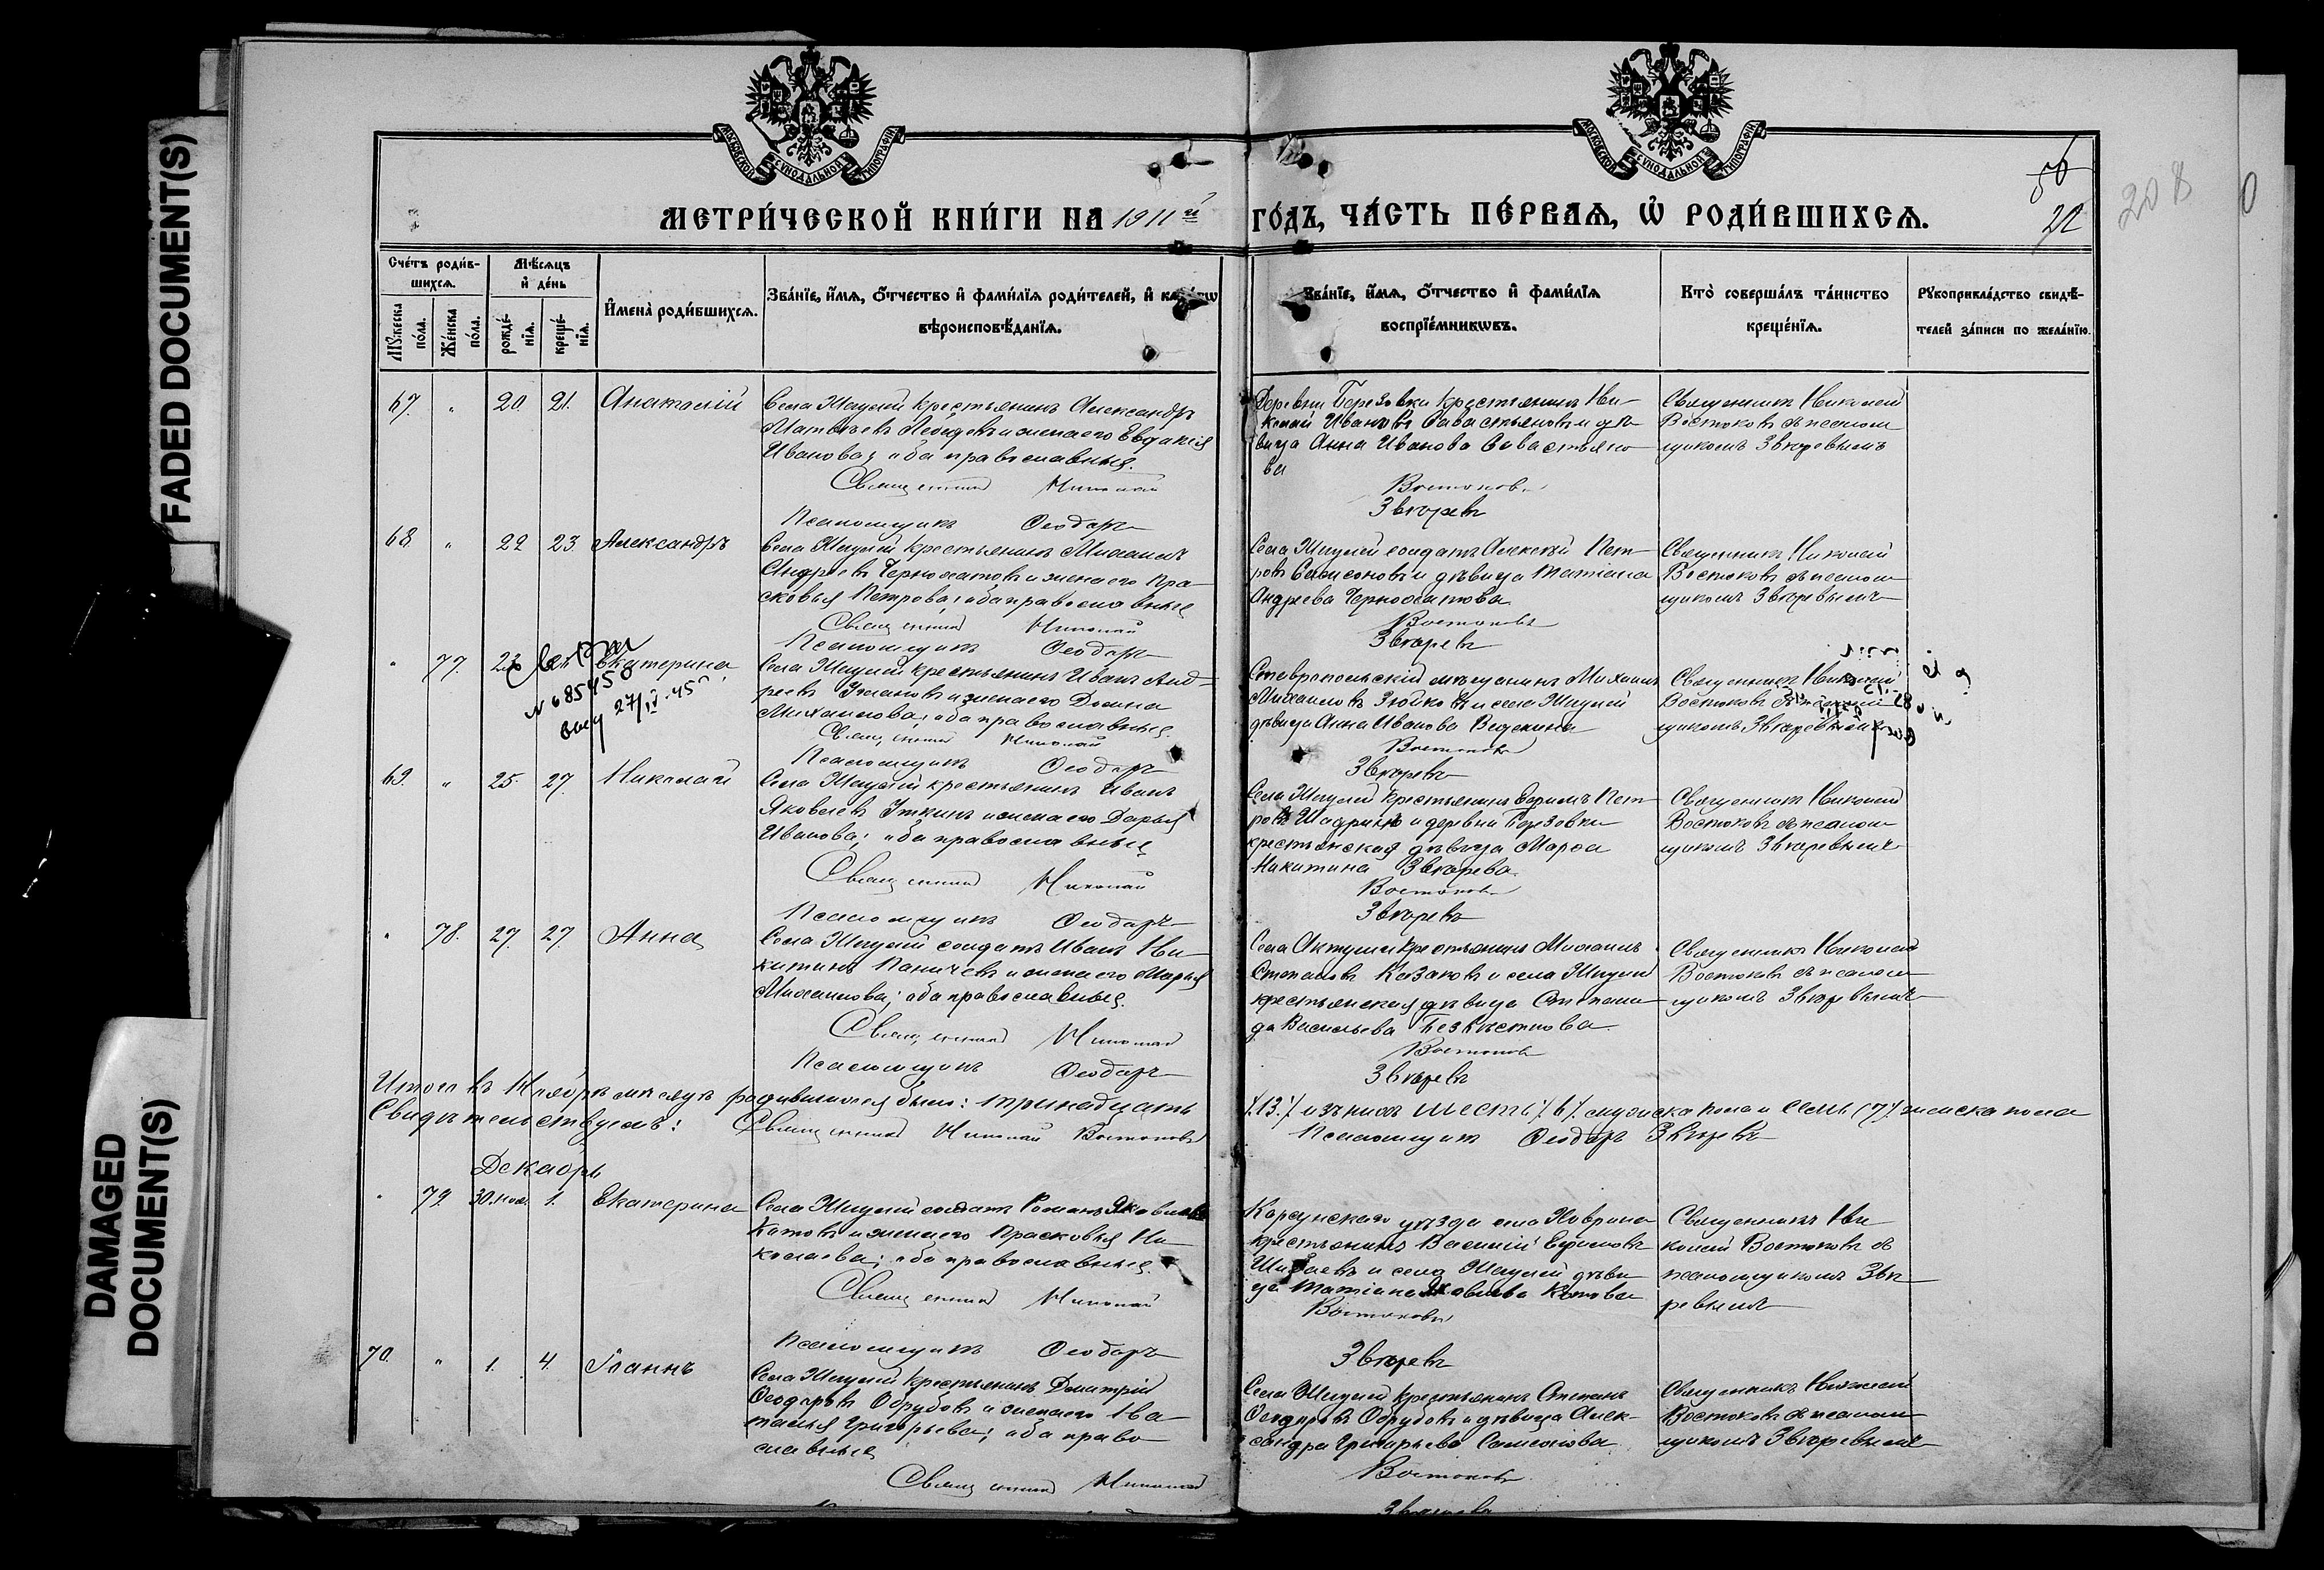 FADED DOCUMENT(S)
DAMAGED DOCUMENT(S)
МОСКОВСКОЙ СѴНОДАЛЬНОЙ ТИПОГРАФІИ
МОСКОВСКОЙ СѴНОДАЛЬНОЙ ТИПОГРАФІИ
56
22
208
0
МЕТРИ́ЧЕСКОЙ КНИ́ГИ НА 1911й ГО́ДЪ, ЧА́СТЬ ПЕ́РВАЯ, Ѡ҆ РОДИ́ВШИХСЯ.
Сче́тъ роди́в-
шихся.
Мꙋ́жеска по́ла.
Же́нска по́ла.
Мѣ́сяцъ
и҆ де́нь
рожде́-
нїя.
креще́-
нїя.
И҆мена̀ роди́вшихся.
Зва́нїе, и҆́мя, ѻ҆́тчество и҆ фами́лїя роди́телей, и҆
вѣроисповѣ́данїя.
Зва́нїе, и҆́мя, ѻ҆́тчество и҆ фами́лїя
воспрїе́мникѡвъ.
Кто̀ соверша́лъ та́инство
креще́нїя.
Рꙋкоприкла́дство свидѣ́-
телей за́писи по жела́нїю.
67. " 20. 21. Анатолій
Села Жигулей крестьянинъ Александръ
Матвѣевъ Лебедевъ и жена его Евдокія
Иванова; оба православные.
Священникъ Николай
Псаломщикъ Ѳеодоръ
Деревни Березовки крестьянинъ Ни-
колай Ивановъ Савастьяновъ и дѣ-
вица Анна Иванова Савастьяно-
ва
Востоковъ
Звѣревъ
Священникъ Николай
Востоковъ съ псалом-
щикомъ Звѣревымъ
68. " 22 23. Александръ
Села Жигулей крестьянинъ Михаилъ
Андреевъ Чернохатовъ и жена его Пра-
сковья Петрова; оба православные
Священникъ Николай
Псаломщикъ Ѳеодоръ
Села Жигулей солдатъ Алексѣй Пет-
ровъ Самсоновъ и дѣвица Татіана
Андреева Чернохатова
Востоковъ
Звѣревъ
Священникъ Николай
Востоковъ съ псалом-
щикомъ Звѣревымъ
" 77. 23 Екатерина
N 685458
27/IV-45
Села Жигулей крестьянинъ Иванъ Анд-
реевъ и жена его Домна
Михаилова; оба православные.
Священникъ Николай
Псаломщикъ Ѳеодоръ
Ставропольскій мѣщанинъ Михаилъ
Михаиловъ Зюйковъ и села Жигулей
дѣвица Анна Иванова
Востоковъ
Звѣревъ
Священникъ Николай
Востоковъ съ псалом-
щикомъ Звѣревымъ
69. " 25. 27. Николай
Села Жигулей крестьянинъ Иванъ
Яковлевъ Уткинъ и жена его Дарья
Иванова; оба православные
Священникъ Николай
Псаломщикъ Ѳеодоръ
Села Жигулей крестьянинъ Ефимъ Пет-
ровъ Шадринъ и деревни Березовки
крестьянская дѣвица Марѳа
Никитина Звѣрева
Востоковъ
Звѣревъ
Священникъ Николай
Востоковъ съ псалом-
щикомъ Звѣревымъ
" 78. 27. 27 Анна
Села Жигулей солдатъ Иванъ Ни-
китинъ Паничевъ и жена его Марья
Михаилова; оба православные.
Священникъ Николай
Псаломщикъ Ѳеодоръ
Села Актуши крестьянинъ Михаилъ
Степановъ Казаковъ и села Жигулей
крестьянская дѣвица Степани-
да Васильева Безвѣстнова
Востоковъ
Звѣревъ
Священникъ Николай
Востоковъ съ псалом-
щикомъ Звѣревымъ
Итого въ Ноябрѣ мѣсяцѣ родившихся было: тринадцать /13./ изъ нихъ шесть /6/ мужска пола и семь (7) женска пола
Свидѣтельствуемъ: Священникъ Николай Востоковъ Псаломщикъ Ѳеодоръ Звѣревъ
Декабрь
" 79. 30.нояб. 1. Екатерина
Села Жигулей солдатъ Романъ Яковлевъ
Котовъ и жена его Прасковья Ни-
колаева; оба православные.
Священникъ Николай
Псаломщикъ Ѳеодоръ
Карсунскаго уѣзда села Ховрина
крестьянинъ Василій Ефимовъ
и села Жигулей дѣви-
ца Татіана Яковлева Котова
Востоковъ
Звѣревъ
Священникъ Ни-
колай Востоковъ съ
псаломщикомъ Звѣ-
ревымъ
70. " 1. 4. Іоаннъ
Села Жигулей крестьянинъ Димитрій
Ѳеодоровъ Обрубовъ и жена его На-
талья Григорьева; оба право-
славные
Священникъ Николай
Села Жигулей крестьянинъ Степанъ
Ѳеодоровъ Обрубовъ и дѣвица Алек-
сандра Григорьева Самсонова
Востоковъ
Звѣревъ
Священникъ Николай
Востоковъ съ псалом-
щикомъ Звѣревымъ